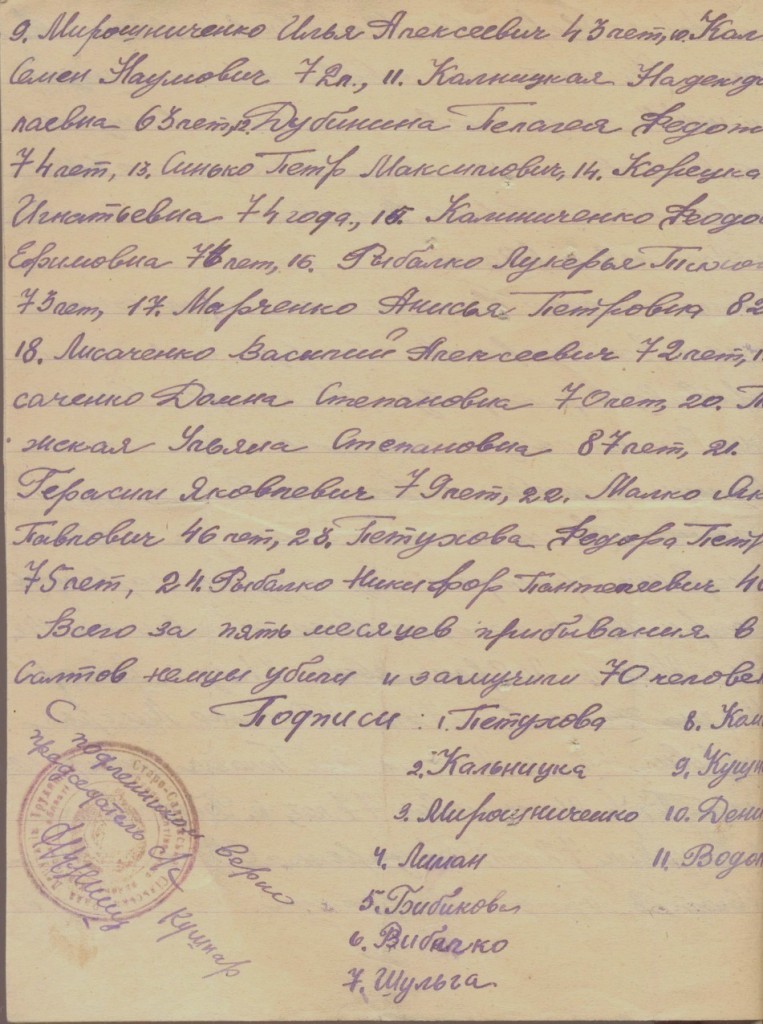 9. Мирошниченко Илья Алексеевич 43 лет, 10. Кал
Семен Наумович 72 л., 11. Калницкая Надежда
лаевна 63 лет, 12. Дубинина Пелагея Федот
74 лет, 13. Синько Петр Максимович, 14. Корецка
Игнатьевна 74 года., 15. Калиниченко Феодо
Ефимовна 76 лет, 16. Рыбалко Лукерья
73 лет, 17. Марченко Анисья Петровна 82
18. Лисаченко Василий Алексеевич 72 лет, 1
саченко Домна Степановна 70 лет, 20.
жская Ульяна Степановна 87 лет, 21.
Герасим Яковлевич 79 лет, 22. Малко Як
Павлович 46 лет, 23. Петухова Федора Петр
75 лет, 24. Рыбалко Никифор Пантелеевич 4
Всего за пять месяцев прибывания в
Салтов немцы убили и замучили 70 челове
Подписи: 1. Петухова 8. Кал
2. Кальницка 9. Кушн
3. Мирошниченко 10. Дени
4. Лиман 11. Водо
5. Бибикова
6. Вибалко
7. Шульга
С подлинником верно
председатель с/с
Кушнар